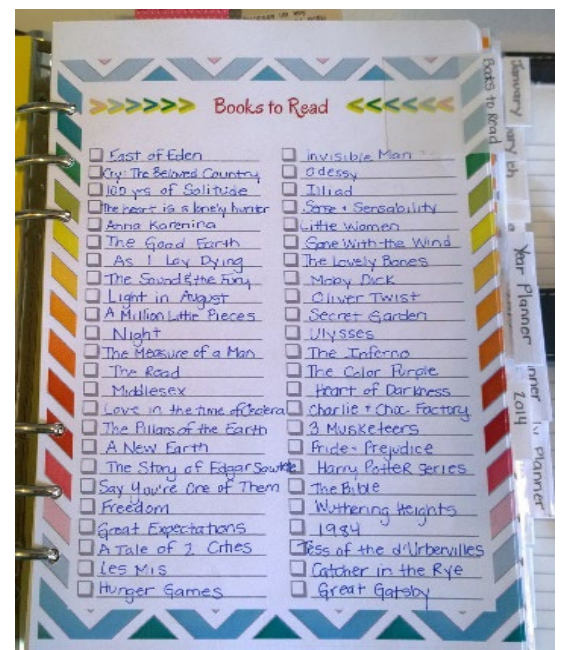 Books to Read
East of Eden
Cry, The Beloved Country
100 yrs of Solitude
The heart is a lonely hunter
Anna Karenina
The Good Earth
As I Lay Dying
The Sound & the Fury
Light in August
A Million Little Pieces
Night
The Measure of a Man
The Road
Middlesex
Love in the time of Cholera
The Pillars of the Earth
A New Earth
The Story of Edgar Sawtelle
Say You're One of Them
Freedom
Great Expectations
A Tale of 2 Cities
Les Mis
Hunger Games
Invisible Man
Odessy
Illiad
Sense + Sensability
Little Women
Gone With the Wind
The Lovely Bones
Moby Dick
Oliver Twist
Secret Garden
Ulysses
The Inferno
The Color Purple
Heart of Darkness
Charlie + Choc Factory
3 Musketeers
Pride + Prejudice
Harry Potter Series
The Bible
Wuthering Heights
1984
Tess of the d'Urbervilles
Catcher in the Rye
Great Gatsby
Books to Read
January
Year Planner
2014
Planner